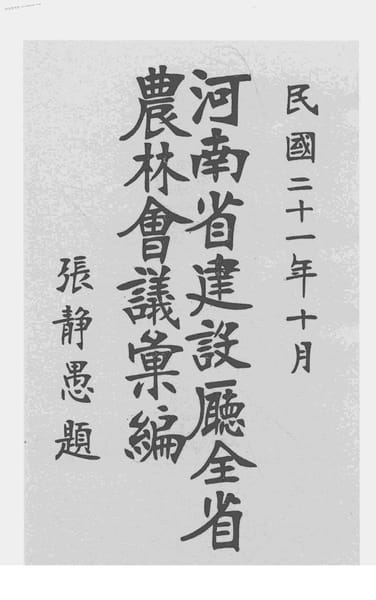 民國二十一年十月
河南省建設廳全省
農林會議彙編
張静愚題